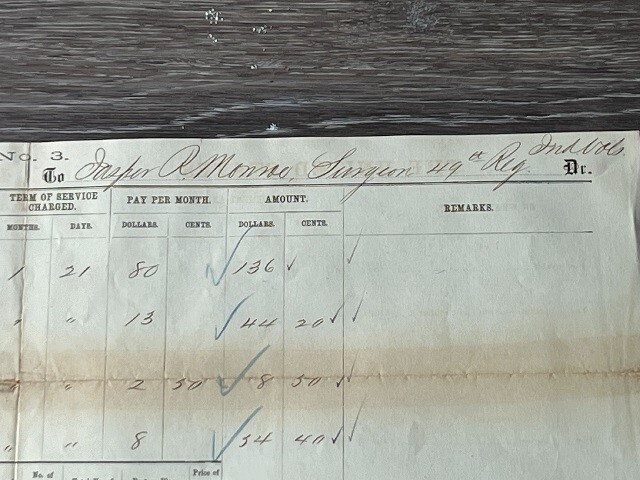 No. 3.
To Jasper R. Monroe, Surgeon 49th Reg. Ind Vols. Dr.
TERM OF SERVICE CHARGED. PAY PER MONTH. AMOUNT. REMARKS.
MONTHS. DAYS. DOLLARS. CENTS. DOLLARS. CENTS.
1 21 80 136
" " 13 44 20
" " 2 50 8 50
" " 8 54 40
No. of Price of